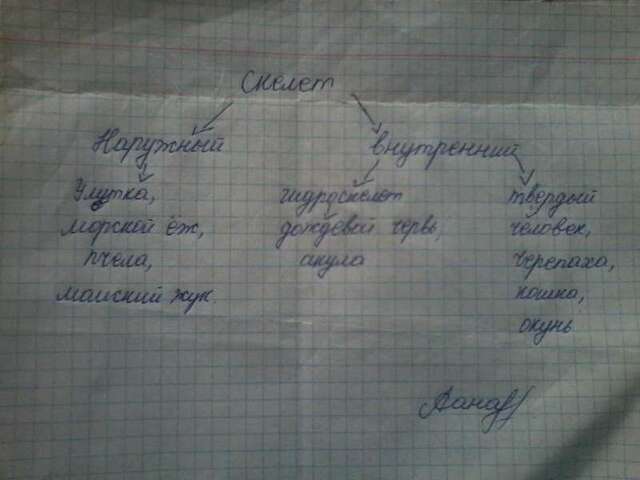 Скелет
Наружный внутренний
Улитка, гидроскелет твердый
морской ёж, дождевой червь, человек,
пчела, акула черепаха,
майский жук. кошка,
окунь